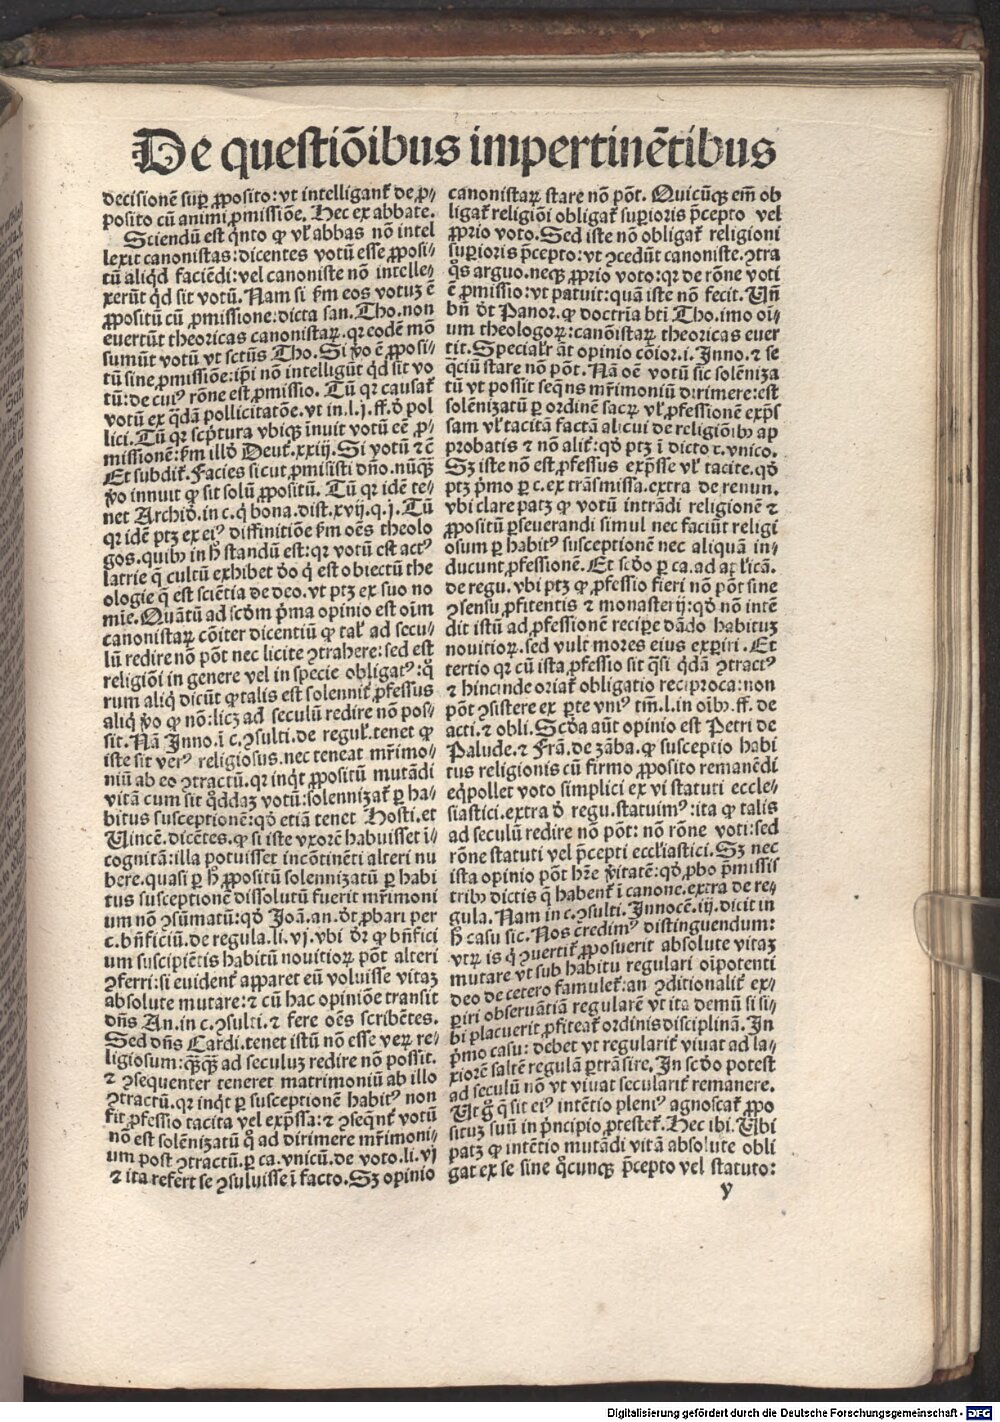 De questiõibus impertinẽtibus
decisionẽ suꝑ ꝓposito: vt intelligant᷑ de ꝓ⸗
posito cũ animi ꝓmissiõe. Hec ex abbate.
Sciendũ est q̇nto ꝙ vl᷑ abbas nõ intel
lexit canonistas: dicentes votũ esse ꝓposi⸗
tũ aliq̇d faciẽdi: vel canoniste nõ intelle⸗
xerũt q̇d sit votũ. Nam si ẜm eos votuꝫ ẽ
ꝓpositũ cũ ꝓmissione: dicta san. Tho. non
euertũt theoricas canonistaꝝ. qꝛ eodẽ mõ
sumũt votũ vt sctũs Tho. Si ꝟo ẽ ꝓposi⸗
tũ sine ꝓmissiõe: ip̃i nõ intelligũt q̇d sit vo
tũ: de cuiꝰ rõne est ꝓmissio. Tũ qꝛ causat᷑
votũ ex q̇dã pollicitatõe. vt in. l. j. ff. ð pol
lici. Tũ qꝛ scp̃tura vbiqꝫ inuit votũ eẽ ꝓ⸗
missionẽ: ẜm illð Deut᷑. xxiij. Si votũ ⁊ c̃
Et subdit᷑. Facies sicut ꝓmisisti dño. nũqꝫ̃
ꝟo innuit ꝙ sit solũ ꝓpositũ. Tũ qꝛ idẽ te⸗
net Archið. in c. q̇ bona. dist. xvij. q. j. Tũ
qꝛ idẽ ptꝫ ex eiꝰ diffinitiõe ẜm oẽs theolo
gos. quibꝰ in ħ standũ est: qꝛ votũ est actꝰ
latrie q̃ cultũ exhibet ðo q̇ est obiectũ the
ologie q̃ est sciẽtia de deo. vt ptꝫ ex suo no
mĩe. Quãtũ ad scðm p̃ma opinio est oĩm
canonistaꝝ cõiter dicentiũ ꝙ tal᷑ ad secu⸗
lũ redire nõ põt nec licite ꝯtrahere: sed est
religiõi in genere vel in specie obligatꝰ: q̊
rum aliq̇ dicũt ꝙ talis est solennit᷑ ꝓfessus
aliq̇ ꝟo ꝙ nõ: licꝫ ad seculũ redire nõ pos⸗
sit. Nã Inno. ĩ c. ꝯsulti. de regul᷑. tenet ꝙ
iste sit verꝰ religiosus. nec teneat mr̃imo⸗
niũ ab eo ꝯtractũ. qꝛ inq̇t ꝓpositũ mutãdi
vitã cum sit q̊ddaꝫ votũ: solennizat᷑ ꝑ ha⸗
bitus susceptionẽ: qð etiã tenet Hosti. et
Vincẽ. dicẽtes. ꝙ si iste vxorẽ habuisset ĩ⸗
cognitã: illa potuisset incõtinẽti alteri nu
bere. quasi ꝑ ħ ꝓpositũ solennizatũ ꝑ habi
tus susceptionẽ dissolutũ fuerit mr̃imoni
um nõ ꝯsũmatũ: qð Joã. an. ð᷑t ꝓbari per
c. bñficiũ. de regula. li. vj. vbi ðꝛ ꝙ bñfici
um suscipiẽtis habitũ nouitioꝝ põt alteri
ꝯferri: si euident᷑ apparet eũ voluisse vitaꝫ
absolute mutare: ⁊ cũ hac opiniõe transit
dñs An. in c. ꝯsulti. ⁊ fere oẽs scribẽtes.
Sed dñs Cardi. tenet istũ nõ esse veꝝ re⸗
ligiosum: qꝫ̃qꝫ̃ ad seculuꝫ redire nõ possit.
⁊ ꝯsequenter teneret matrimoniũ ab illo
ꝯtractũ. qꝛ inq̇t ꝑ susceptionẽ habitꝰ non
fit ꝓfessio tacita vel exp̃ssa: ⁊ ꝯseqñt᷑ votũ
nõ est solẽnizatũ q̊ ad dirimere mr̃imoni⸗
um post ꝯtractũ. ꝑ ca. vnicũ. de voto. li. vj
⁊ ita refert se ꝯsuluisse ĩ facto. Sꝫ opinio
canonistaꝝ stare nõ põt. Quicũqꝫ em̃ ob
ligat᷑ religiõi obligat᷑ suꝑioris p̃cepto vel
ꝓprio voto. Sed iste nõ obligat᷑ religioni
suꝑioris p̃cepto: vt ꝯcedũt canoniste. ꝯtra
q̊s arguo. neqꝫ ꝓprio voto: qꝛ de rõne voti
ẽ ꝓmissio: vt patuit: quã iste nõ fecit. Vñ
bñ ð᷑t Panoꝛ. ꝙ doctria bti Tho. imo oĩ⸗
um theologoꝝ: canõistaꝝ theoricas euer
tit. Specialr̃ ãt opinio cõioꝛ. i. Inno. ⁊ se
q̇ciũ stare nõ põt. Nã oẽ votũ sic solẽniza
tũ vt possit seq̃ns mr̃imoniũ dirimere: est
solẽnizatũ ꝑ ordinẽ sacꝝ vl᷑ ꝓfessionẽ exp̃s
sam vl᷑ tacitã factã alicui de religiõibꝰ ap
probatis ⁊ nõ alit᷑: qð ptꝫ ĩ dicto c. vnico.
Sꝫ iste nõ est ꝓfessus exp̃sse vl᷑ tacite. qð
ptꝫ p̃mo ꝑ c. ex trãsmissa. extra de renun.
vbi clare patꝫ ꝙ votũ intrãdi religionẽ ⁊
ꝓpositũ ꝑseuerandi simul nec faciũt religi
osum ꝑ habitꝰ susceptionẽ nec aliquã in⸗
ducunt ꝓfessionẽ. Et scðo ꝑ ca. ad apl᷑icã.
de regu. vbi ptꝫ ꝙ ꝓfessio fieri nõ põt sine
ꝯsensu ꝓfitentis ⁊ monasterij: qð nõ intẽ
dit istũ ad ꝓfessionẽ reciꝑe dãdo habituꝫ
nouitioꝝ. sed vult mores eius exꝑiri. Et
tertio qꝛ cũ ista ꝓfessio sit q̃si q̇dã ꝯtractꝰ
⁊ hincinde oriat᷑ obligatio reciproca: non
põt ꝯsistere ex ꝑte vniꝰ tm̃. l. in oĩbꝰ. ff. de
acti. ⁊ obli. Scða aũt opinio est Petri de
Palude. ⁊ Frã. de zãba. ꝙ susceptio habi
tus religionis cũ firmo ꝓposito remanẽdi
eq̇pollet voto simplici ex vi statuti eccle⸗
siastici. extra ð regu. statuimꝰ: ita ꝙ talis
ad seculũ redire nõ põt: nõ rõne voti: sed
rõne statuti vel p̃cepti eccl᷑iastici. Sꝫ nec
ista opinio põt hr̃e ꝟitatẽ: qð ꝓbo p̃missis
tribꝰ dictis q̃ habent᷑ ĩ canone. extra de re⸗
gula. Nam in c. ꝯsulti. Innocẽ. iij. dicit in
ħ casu sic. Nos credimꝰ distinguendum:
vtꝝ is q̇ ꝯuertit᷑ ꝓposuerit absolute vitaꝫ
mutare vt sub habitu regulari oĩpotenti
deo de cetero famulet᷑: an ꝯditionalit᷑ ex⸗
ꝑiri obseruãtiã regularẽ vt ita demũ si si⸗
bi placuerit ꝓfiteat᷑ ordinis disciplinã. In
p̃mo casu: debet vt regularit᷑ viuat ad la⸗
xiorẽ saltẽ regulã ꝑtrãsire. In scðo potest
ad seculũ nõ vt viuat secularit᷑ remanere.
Vt g̊ q̃ sit eiꝰ intẽtio pleniꝰ agnoscat᷑ ꝓpo
situꝫ suũ in p̃ncipio ꝓtestet᷑. Hec ibi. Vbi
patꝫ ꝙ intẽtio mutãdi vitã absolute obli
gat ex se sine q̊cunqꝫ p̃cepto vel statuto:
y
Digitalisierung gefördert durch die Deutsche Forschungsgemeinschaft - DFG